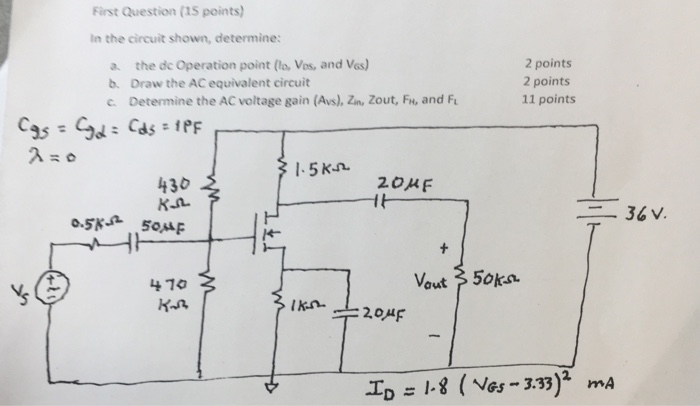 First Question (15 points)
In the circuit shown, determine:
a. the dc Operation point (ID, VDS, and VGS) 2 points
b. Draw the AC equivalent circuit 2 points
c. Determine the AC voltage gain (Avs), Zin, Zout, FH, and FL 11 points
Cgs = Cgd = Cds = 1PF
λ = 0
1.5KΩ
430
KΩ
20μF
0.5KΩ
50μF
36 V.
+
Vs
470
KΩ
Vout
50KΩ
1KΩ
20μF
-
ID = 1.8 (VGS - 3.33)² mA